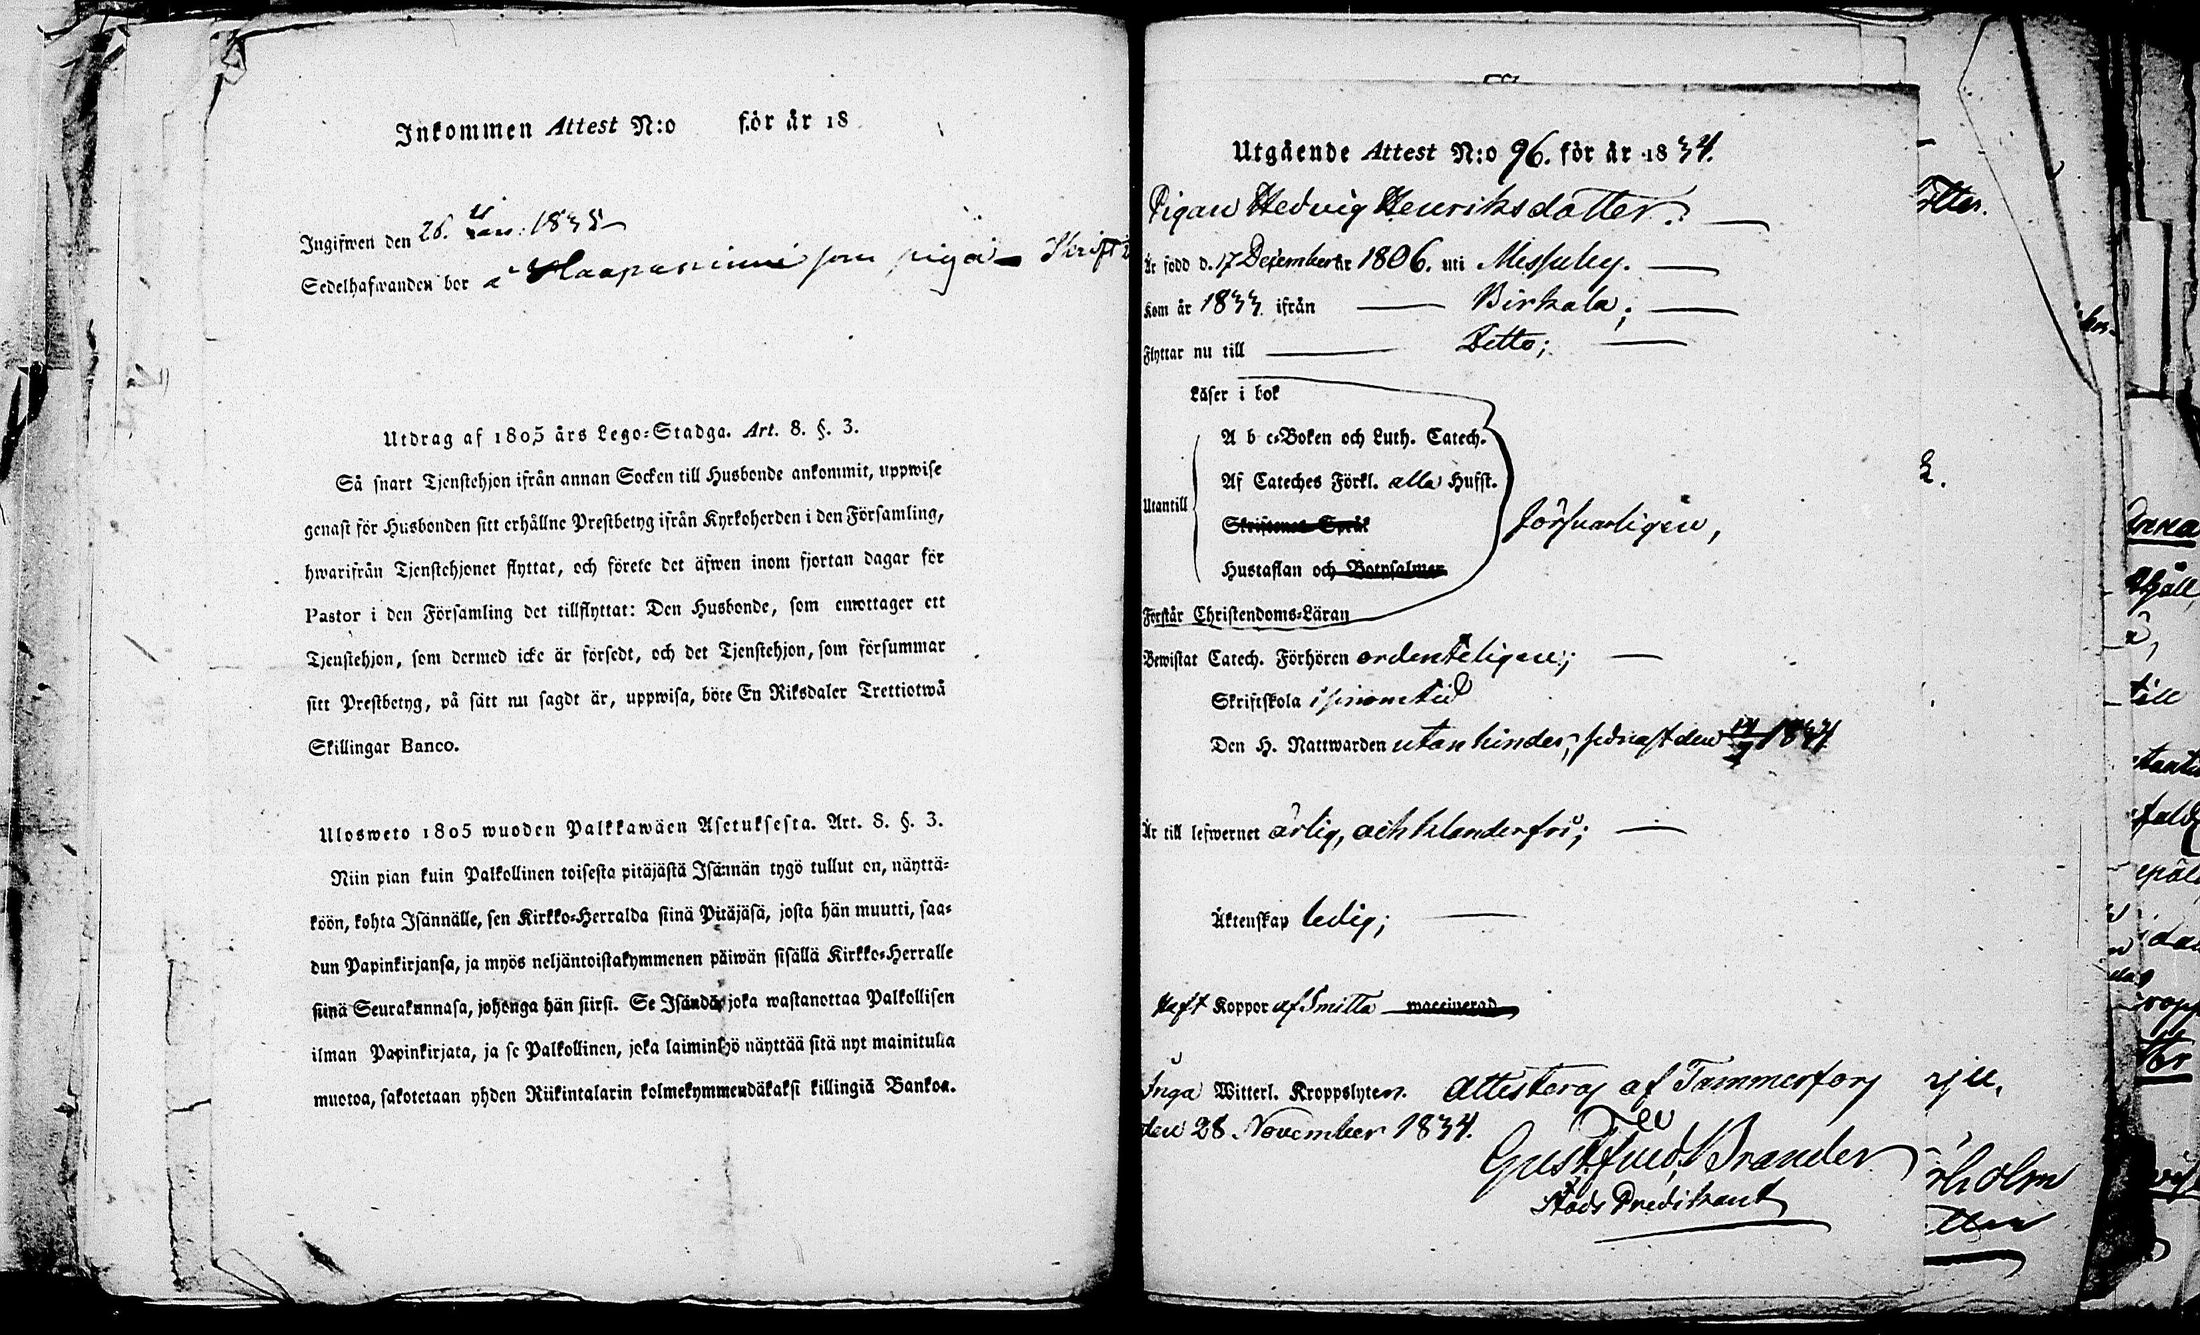 Inkommen Attest N:o för år 18
Ingifwen den 26. Jan: 1835
Sedelhafwanden bor å Haapaniemi som piga
Utdrag af 1805 års Lego-Stadga. Art. 8. §. 3.
Så snart Tjenstehjon ifrån annan Socken till Husbonde ankommit, uppwise
genast för Husbonden sitt erhållne Prestbetyg ifrån Kyrkoherden i den Församling,
hwarifrån Tjenstehjonet flyttat, och förete det äfwen inom fjortan dagar för
Pastor i den Församling det tillflyttat: Den Husbonde, som emottager ett
Tjenstehjon, som dermed icke är försedt, och det Tjenstehjon, som försummar
sitt Prestbetyg, på sätt nu sagdt är, uppwisa, böte En Riksdaler Trettiotwå
Skillingar Banco.
Ulosweto 1805 wuoden Palkkawäen Asetuksesta. Art. 8. §. 3.
Niin pian kuin Palkollinen toisesta pitäjästä Isännän tygö tullut on, näyttä-
köön, kohta Isännälle, sen Kirkko-Herralda siinä Pitäjäsä, josta hän muutti, saa-
dun Papinkirjansa, ja myös neljäntoistakymmenen päiwän sisällä Kirkko-Herralle
siinä Seurakunnasa, johonga hän siirsi. Se Isändä, joka wastanottaa Palkollisen
ilman Papinkirjata, ja se Palkollinen, joka laiminlyö näyttää sitä nyt mainitulla
muotoa, sakotetaan yhden Riikintalarin kolmekymmendäkaksi killingiä Bankoa.
Utgående Attest N:o 96. för år 1834.
Pigan Hedvig Henriksdotter.
Är född d. 17 December år 1806. uti Messuby.
Kom år 1833 ifrån Birkala;
Flyttar nu till Ditto;
Läser i bok
A b c-Boken och Luth. Catech.
Af Cateches Förkl. alla Hufst.
Utantill
Skriftenes Språk
försvarligen,
Hustaflan och Botpsalmer
Förstår Christendoms-Läran
Bewistat Catech. Förhören ordenteligen;
Skriftskola i sinom tid
Den H. Nattwarden utan hinder, sednast den 14/9 1834
Är till lefwernet ärlig, och klanderfri;
Äktenskap ledig;
Haft Koppor af Smitta waccinerad
Inga Witterl. Kroppslyten. Attesteras af Tammerfors
den 28 November 1834.
Gust. Fred. Brander
Stads Predikant